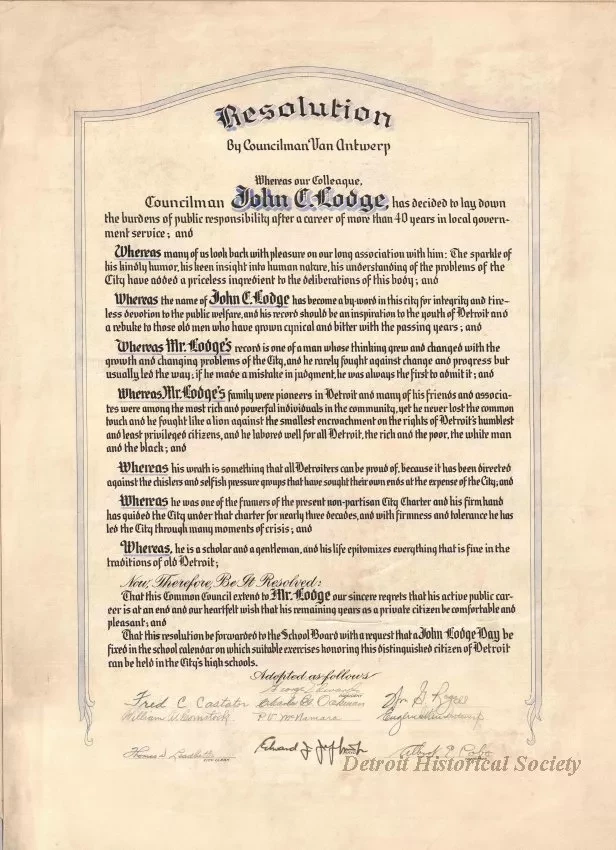 Resolution
By Councilman Van Antwerp
Whereas our Colleague,
Councilman John C. Lodge, has decided to lay down
the burdens of public responsibility after a career of more than 40 years in local govern-
ment service; and
Whereas many of us look back with pleasure on our long association with him: The sparkle of
his kindly humor, his keen insight into human nature, his understanding of the problems of the
City have added a priceless ingredient to the deliberations of this body; and
Whereas the name of John C. Lodge has become a by-word in this city for integrity and tire-
less devotion to the public welfare, and his record should be an inspiration to the youth of Detroit and
a rebuke to those old men who have grown cynical and bitter with the passing years; and
Whereas Mr. Lodge's record is one of a man whose thinking grew and changed with the
growth and changing problems of the City, and he rarely fought against change and progress but
usually led the way; if he made a mistake in judgment, he was always the first to admit it; and
Whereas, Mr. Lodge's family were pioneers in Detroit and many of his friends and associa-
tes were among the most rich and powerful individuals in the community, yet he never lost the common
touch and he fought like a lion against the smallest encroachment on the rights of Detroit's humblest
and least privileged citizens, and he labored well for all Detroit, the rich and the poor, the white man
and the black; and
Whereas his wrath is something that all Detroiters can be proud of, because it has been directed
against the chislers and selfish pressure groups that have sought their own ends at the expense of the City; and
Whereas he was one of the framers of the present non-partisan City Charter and his firm hand
has guided the City under that charter for nearly three decades, and with firmness and tolerance he has
led the City through many moments of crisis; and
Whereas, he is a scholar and a gentleman, and his life epitomizes everything that is fine in the
traditions of old Detroit;
Now, Therefore, Be It Resolved:
That this Common Council extend to Mr. Lodge our sincere regrets that his active public car-
eer is at an end and our heartfelt wish that his remaining years as a private citizen be comfortable and
pleasant; and
That this resolution be forwarded to the School Board with a request that a John Lodge Day be
fixed in the school calendar on which suitable exercises honoring this distinguished citizen of Detroit
can be held in the City's high schools.
Adopted as follows
George Edwards
Fred C. Castator Charles G. Oakman
William G. Rogell
William A. Comstock P. V. McNamara Eugene Van Antwerp
Thomas D. Leadbetter Edward J. Jeffries Albert E. Cobo
CITY CLERK
Detroit Historical Society